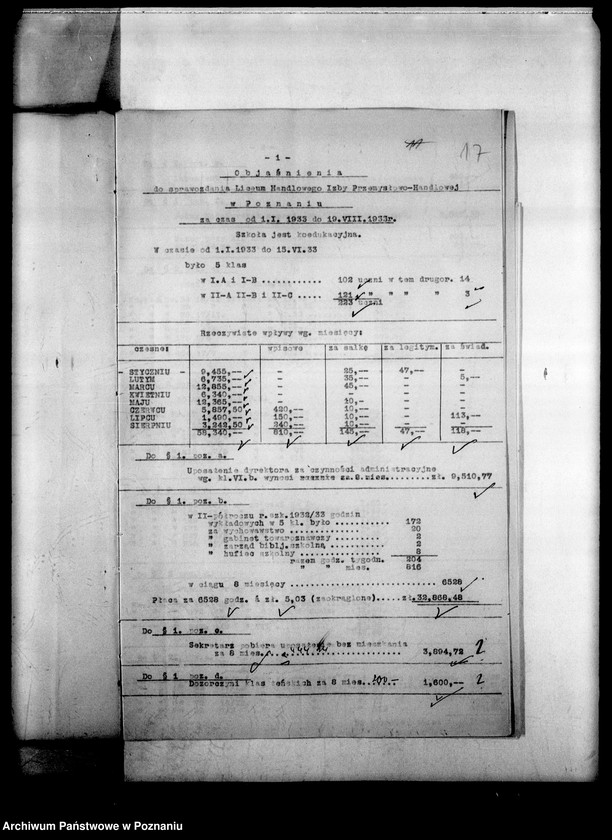 17
- 1 -
Objaśnienia
do sprawozdania Liceum Handlowego Izby Przemysłowo-Handlowej
w Poznaniu
za czas od 1.I. 1933 do 19.VIII.1933r.
Szkoła jest koedukacyjna.
W czasie od 1.I.1933 do 15.VI.33
było 5 klas
w I.A i I-B ............ 102 uczni w tem drugor. 14
w II-A II-B i II-C ..... 121 " " " " 3
223 uczni
Rzeczywiste wpływy wg. miesięcy:
czesne: wpisowe za salkę za legitym. za świad.
- STYCZNIU - 9,455,-- - 25,-- 47,-- -
LUTYM 6,735,-- - 35,-- - 5,--
MARCU 12,855,-- - 45,-- - -
KWIETNIU 6,340,-- - - - -
MAJU 12,365,-- - 10,-- - -
CZERWCU 5,857,50 420,-- 10,-- - -
LIPCU 1,490,-- 150,-- 10,-- - 113,--
SIERPNIU 3,242,50 240,-- 10,-- - -
58,340,-- 810,-- 145,-- 47,-- 118,--
Do § 1. poz. a.
Uposażenie dyrektora za czynności administracyjne
wg. kl.VI.b. wynosi za 8 mies.... zł. 9,510,77
Do § 1. poz. b.
w II-półroczu r.szk.1932/33 godzin
wykładowych w 5 kl. było .......... 172
za wychowawstwo ................... 20
" gabinet towaroznawczy .......... 2
" zarząd biblj.szkolną ........... 2
" hufiec szkolny ................. 8
razem godz. tygodn. 204
" " mies. 816
w ciągu 8 miesięcy ........................... 6528
Płaca za 6528 godz. á zł. 5,03 (zaokrąglone).... zł. 32,868,48
Do § 1. poz. c.
Sekretarz pobiera uposażenie bez mieszkania
za 8 mies. .......................... 3,894,72 ?
Do § 1 poz. d.
Dozorczyni klas żeńskich za 8 mies. 200.- 1,600,-- ?
Archiwum Państwowe w Poznaniu